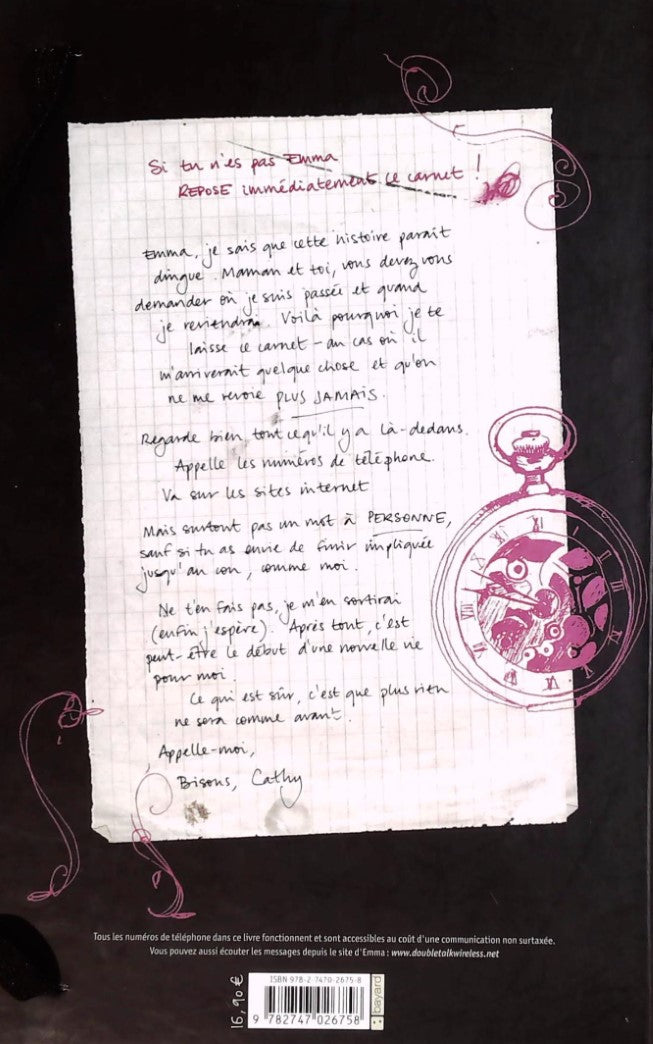 Si tu n'es pas Emma
REPOSE immédiatement ce carnet !
Emma, je sais que cette histoire paraît
dingue. Maman et toi, vous devez vous
demander où je suis passée et quand
je reviendrai. Voilà pourquoi je te
laisse ce carnet - au cas où il
m'arriverait quelque chose et qu'on
ne me revoie PLUS JAMAIS.
Regarde bien tout ce qu'il y a là-dedans.
Appelle les numéros de téléphone.
Va sur les sites internet
Mais surtout pas un mot à PERSONNE,
sauf si tu as envie de finir impliquée
jusqu'au cou, comme moi.
Ne t'en fais pas, je m'en sortirai
(enfin j'espère). Après tout, c'est
peut-être le début d'une nouvelle vie
pour moi.
Ce qui est sûr, c'est que plus rien
ne sera comme avant.
Appelle-moi,
Bisous, Cathy
Tous les numéros de téléphone dans ce livre fonctionnent et sont accessibles au coût d'une communication non surtaxée.
Vous pouvez aussi écouter les messages depuis le site d'Emma : www.doubletalkwireless.net
16,90 €
ISBN 978-2-7470-2675-8
9 782747 026758
bayard